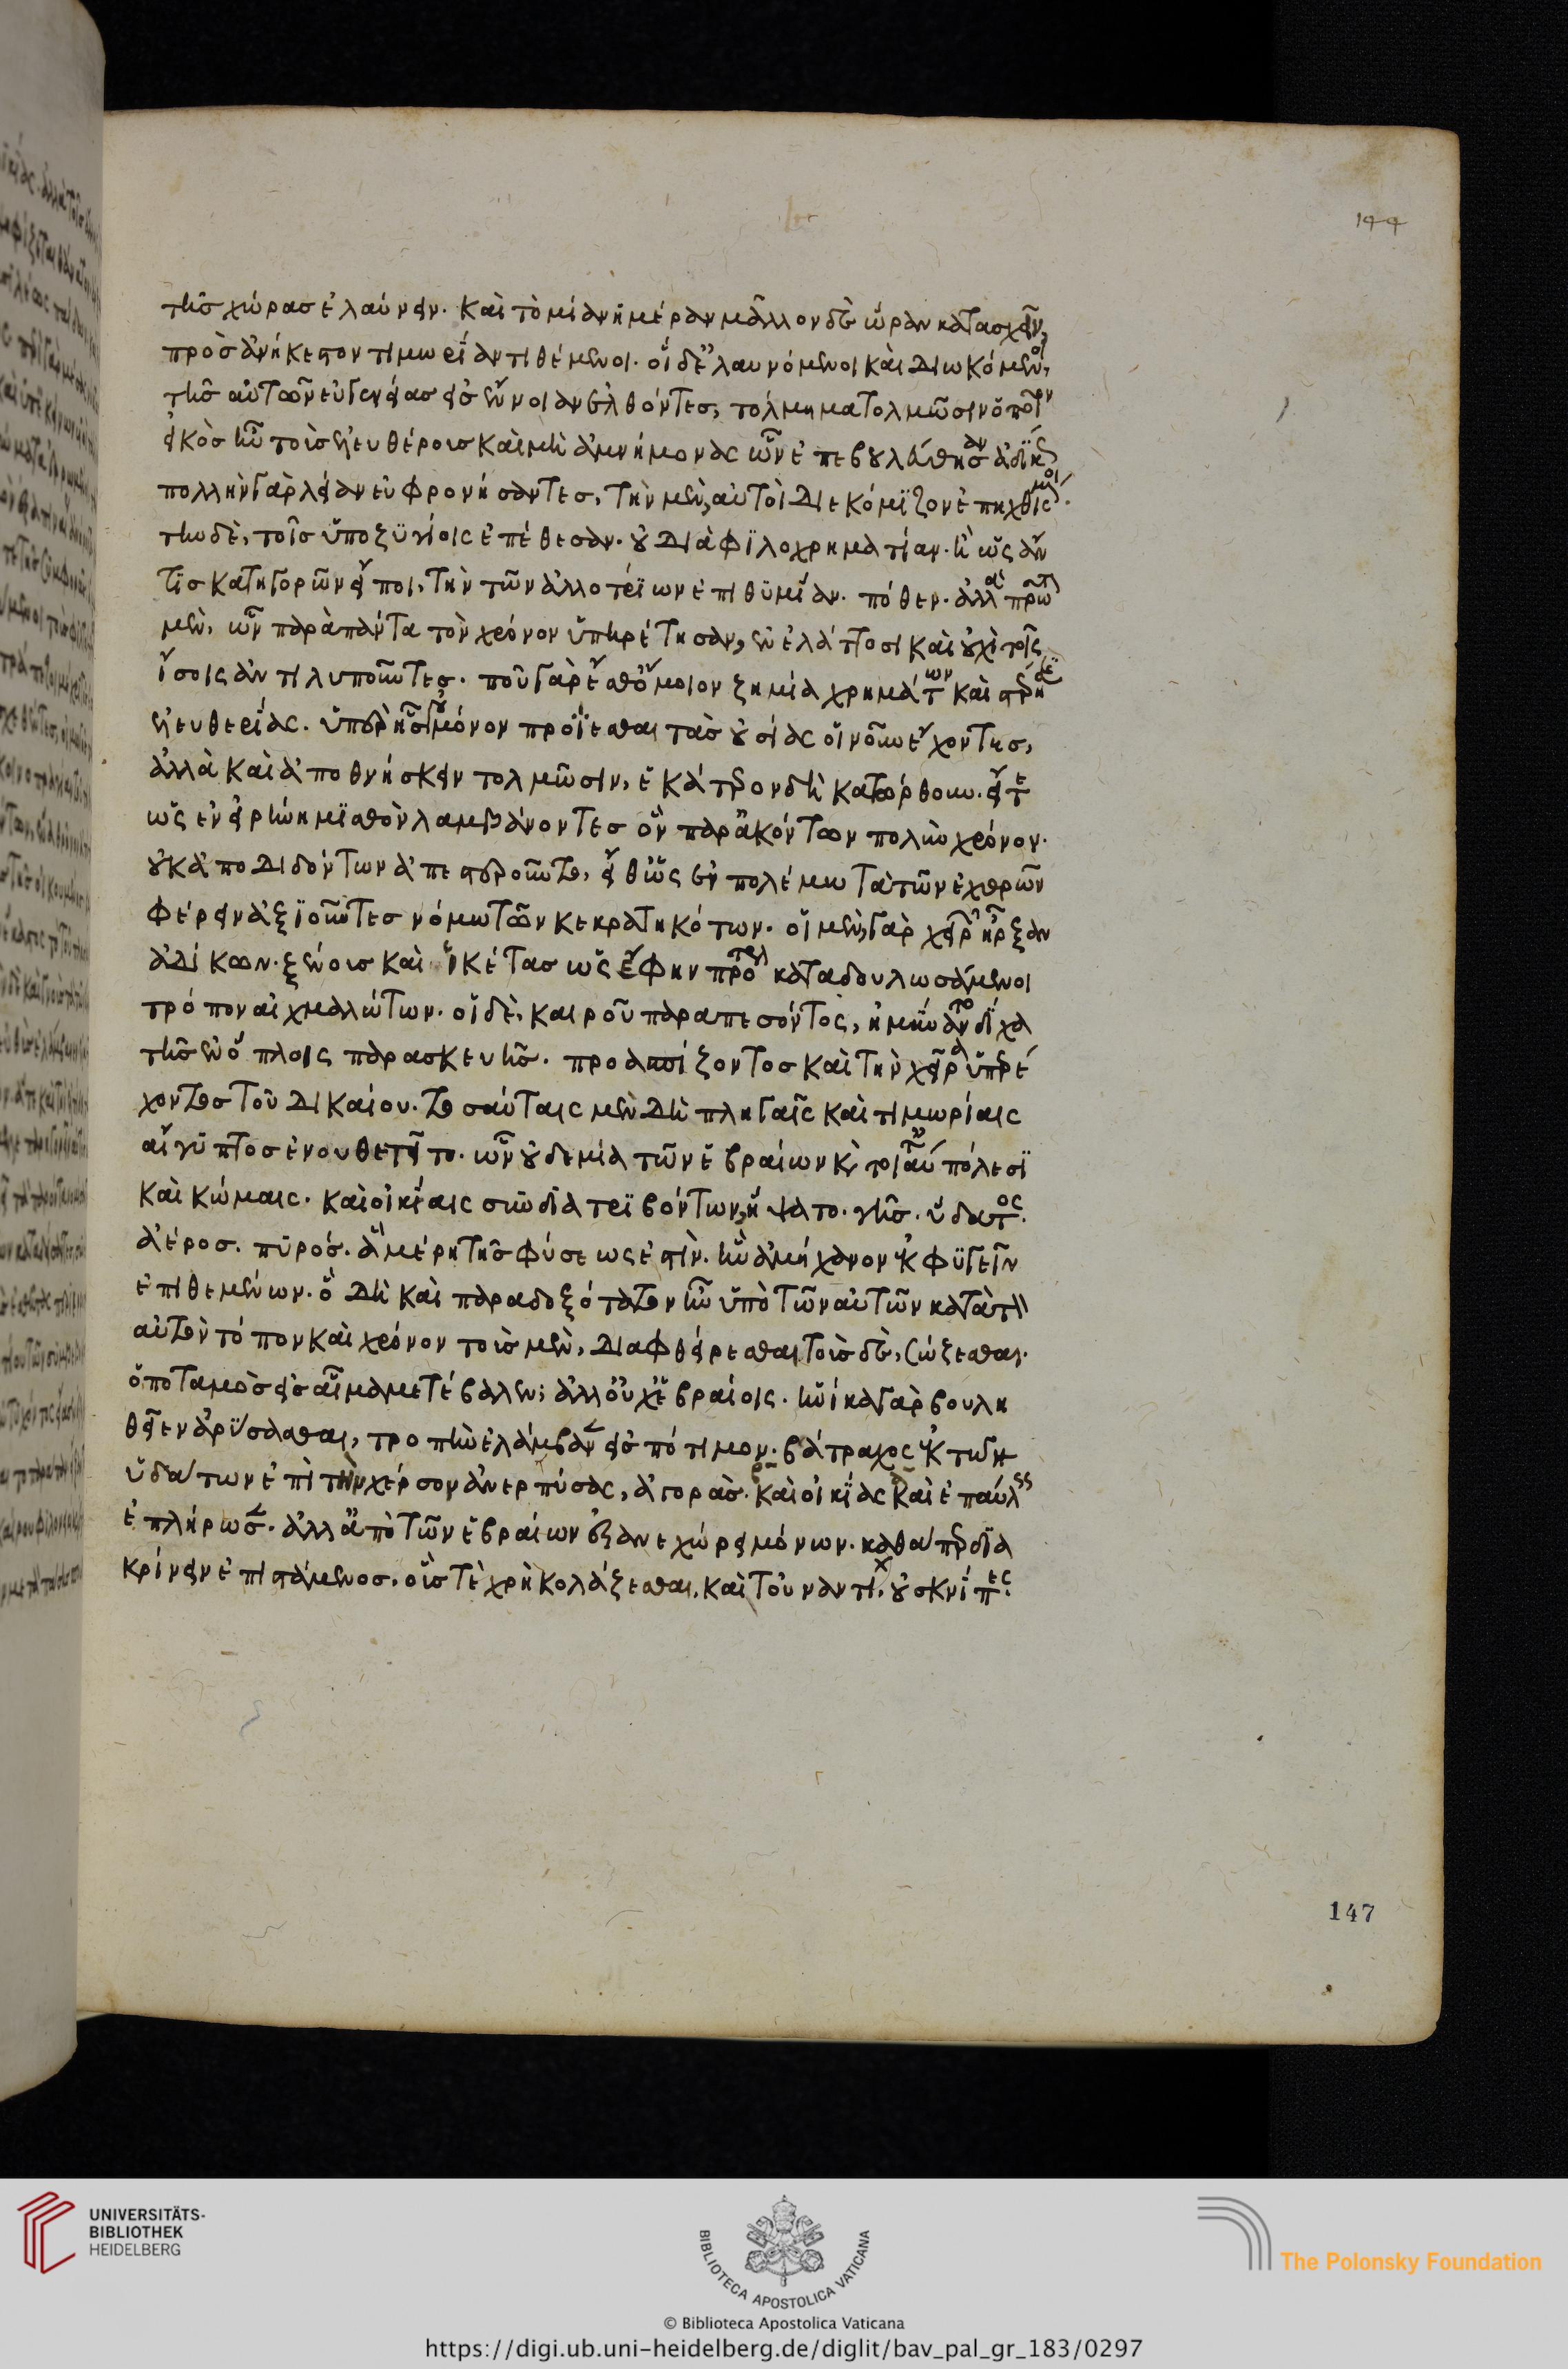 τῆς χώρας ἐλαύνειν. καὶ τὸ μίαν ἡμέραν μᾶλλον δὲ ὥραν κατασχεῖν,
πρὸς ἀνήκεστον τιμωρίαν τιθέμενοι. οἱ δ' ἐλαυνόμενοι καὶ διωκόμενοι,
τῆς αὐτῶν εὐγενείας εἰς ἔννοιαν ἐλθόντες, τόλμημα τολμῶσιν ὁποῖον
εἰκὸς ἦν τοῖς ἐλευθέροις καὶ μὴ ἀμνήμονας ὧν ἐπεβουλεύθησαν ἀδίκως
πολλὴν γὰρ λείαν εὐφρονήσαντες, τὴν μὲν, αὐτοὶ διεκόμιζον ἐπηχθισμένοι.
τὴν δὲ, τοῖς ὑποζυγίοις ἐπέθεσαν. οὐ διὰ φιλοχρηματίαν. ἢ ὡς ἄν
τις κατηγορῶν εἴποι, τὴν τῶν ἀλλοτρίων ἐπιθυμίαν. πόθεν. ἀλλὰ πρῶτον
μὲν, ὧν παρὰ πάντα τὸν χρόνον ὑπηρέτησαν, ἐν ἐλάττοσι καὶ οὐχὶ τοῖς
ἴσοις ἀντιλυποῦντες. ποῦ γὰρ ἔσθ' ὅμοιον ζημία χρημάτων καὶ στέρησις
ἐλευθερίας. ὑπὲρ ἧς οὐ μόνον προΐεσθαι τὰς οὐσίας οἱ νοῦν ἔχοντες,
ἀλλὰ καὶ ἀποθνήσκειν τολμῶσιν, ἑκάτερον δὴ κατώρθουν. εἴτε
ὡς ἐν εἰρήνη μισθὸν λαμβάνοντες ὃν παρ' ἀκόντων πολὺν χρόνον.
οὐκ ἀποδιδόντων ἀπεστεροῦντο, εἴθ' ὡς ἐν πολέμω τὰ τῶν ἐχθρῶν
φέρειν ἀξιοῦντες νόμω τῶν κεκρατηκότων. οἱ μὲν, γὰρ χειρῶν ἦρξαν
ἀδίκων. ξένοις καὶ ἱκέτας ὡς ἔφην πρότερον καταδουλωσάμενοι
τρόπον αἰχμαλώτων. οἱ δὲ, καιροῦ παραπεσόντος, ἠμύναντο δίχα
τῆς ἐν ὅπλοις παρασκευῆς. προασπίζοντος καὶ τὴν χεῖρα ὑπερέ
χοντος τοῦ δικαίου. τοσαύταις μὲν δὴ πληγαῖς καὶ τιμωρίαις
αἴγυπτος ἐνουθετεῖτο. ὧν οὐδεμία τῶν ἑβραίων καὶ τοι ἐν αὐταῖς πόλεσι
καὶ κώμαις. καὶ οἰκίαις συνδιατριβόντων, ἥψατο. γῆς. ὕδατος.
ἀέρος. πυρός. ἃ μέρη τῆς φύσεως ἐστὶν. ἣν ἀμήχανον ἐκφυγεῖν
ἐπιθεμένων. ὃ δὴ καὶ παραδοξότατον ἦν ὑπὸ τῶν αὐτῶν κατὰ τὸν
αὐτὸν τόπον καὶ χρόνον τοῖς μὲν, διαφθείρεσθαι τοῖς δὲ, σώζεσθαι.
ὁ ποταμὸς εἰς αἷμα μετέβαλεν; ἀλλ' οὐχ ἑβραίοις. ἡνίκα γὰρ βουλη
θεῖεν ἀρύσασθαι, τροπὴν ἐλάμβανεν εἰς πότιμον. βάτραχος ἐκ τῶν
ὑδάτων ἐπὶ τὴν χέρσον ἀνερπύσας, ἀγορὰς. καὶ οἰκίας καὶ ἐπαύλεις
ἐπλήρωσεν. ἀλλ' ἀπὸ τῶν ἑβραίων ἐξανεχώρει μόνων. καθάπερ δια
κρίνειν ἐπιστάμενος. οὕς τε χρὴ κολάζεσθαι. καὶ τοὐναντίον. οὐ σκνίπες.
144
147
UNIVERSITÄTS-
BIBLIOTHEK
HEIDELBERG
BIBLIOTECA APOSTOLICA VATICANA
The Polonsky Foundation
© Biblioteca Apostolica Vaticana
https://digi.ub.uni-heidelberg.de/diglit/bav_pal_gr_183/0297